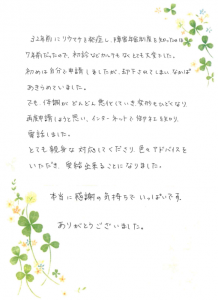 32年前にリウマチを発症し、障害年金制度を知ったのは
7年前だったので、初診などかなりとても大変でした。
初めは自分で申請しましたが、却下されてしまい なかば
あきらめていました。
でも、体調がどんどん悪くなっていき
再度申請しようと思い、インターネットで
電話しました。
とても親身な対応してくださり、色々アドバイスを
いただき、受給出来ることになりました。
本当に感謝の気持ちでいっぱいです。
ありがとうございました。